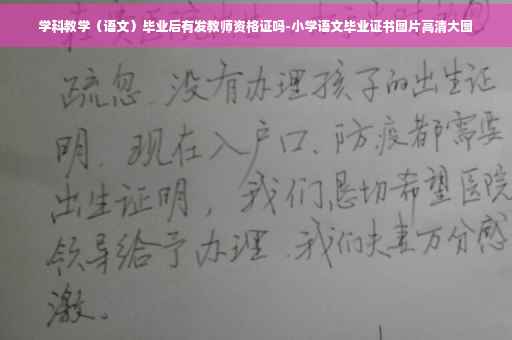 学科教学（语文）毕业后有发教师资格证吗-小学语文毕业证书图片高清大图
疏忽.没有办理孩子的出生证
明.现在入户口、防疫都需要
出生证明，我们恳切希望医院
领导给予办理.我们夫妻万分感
激。